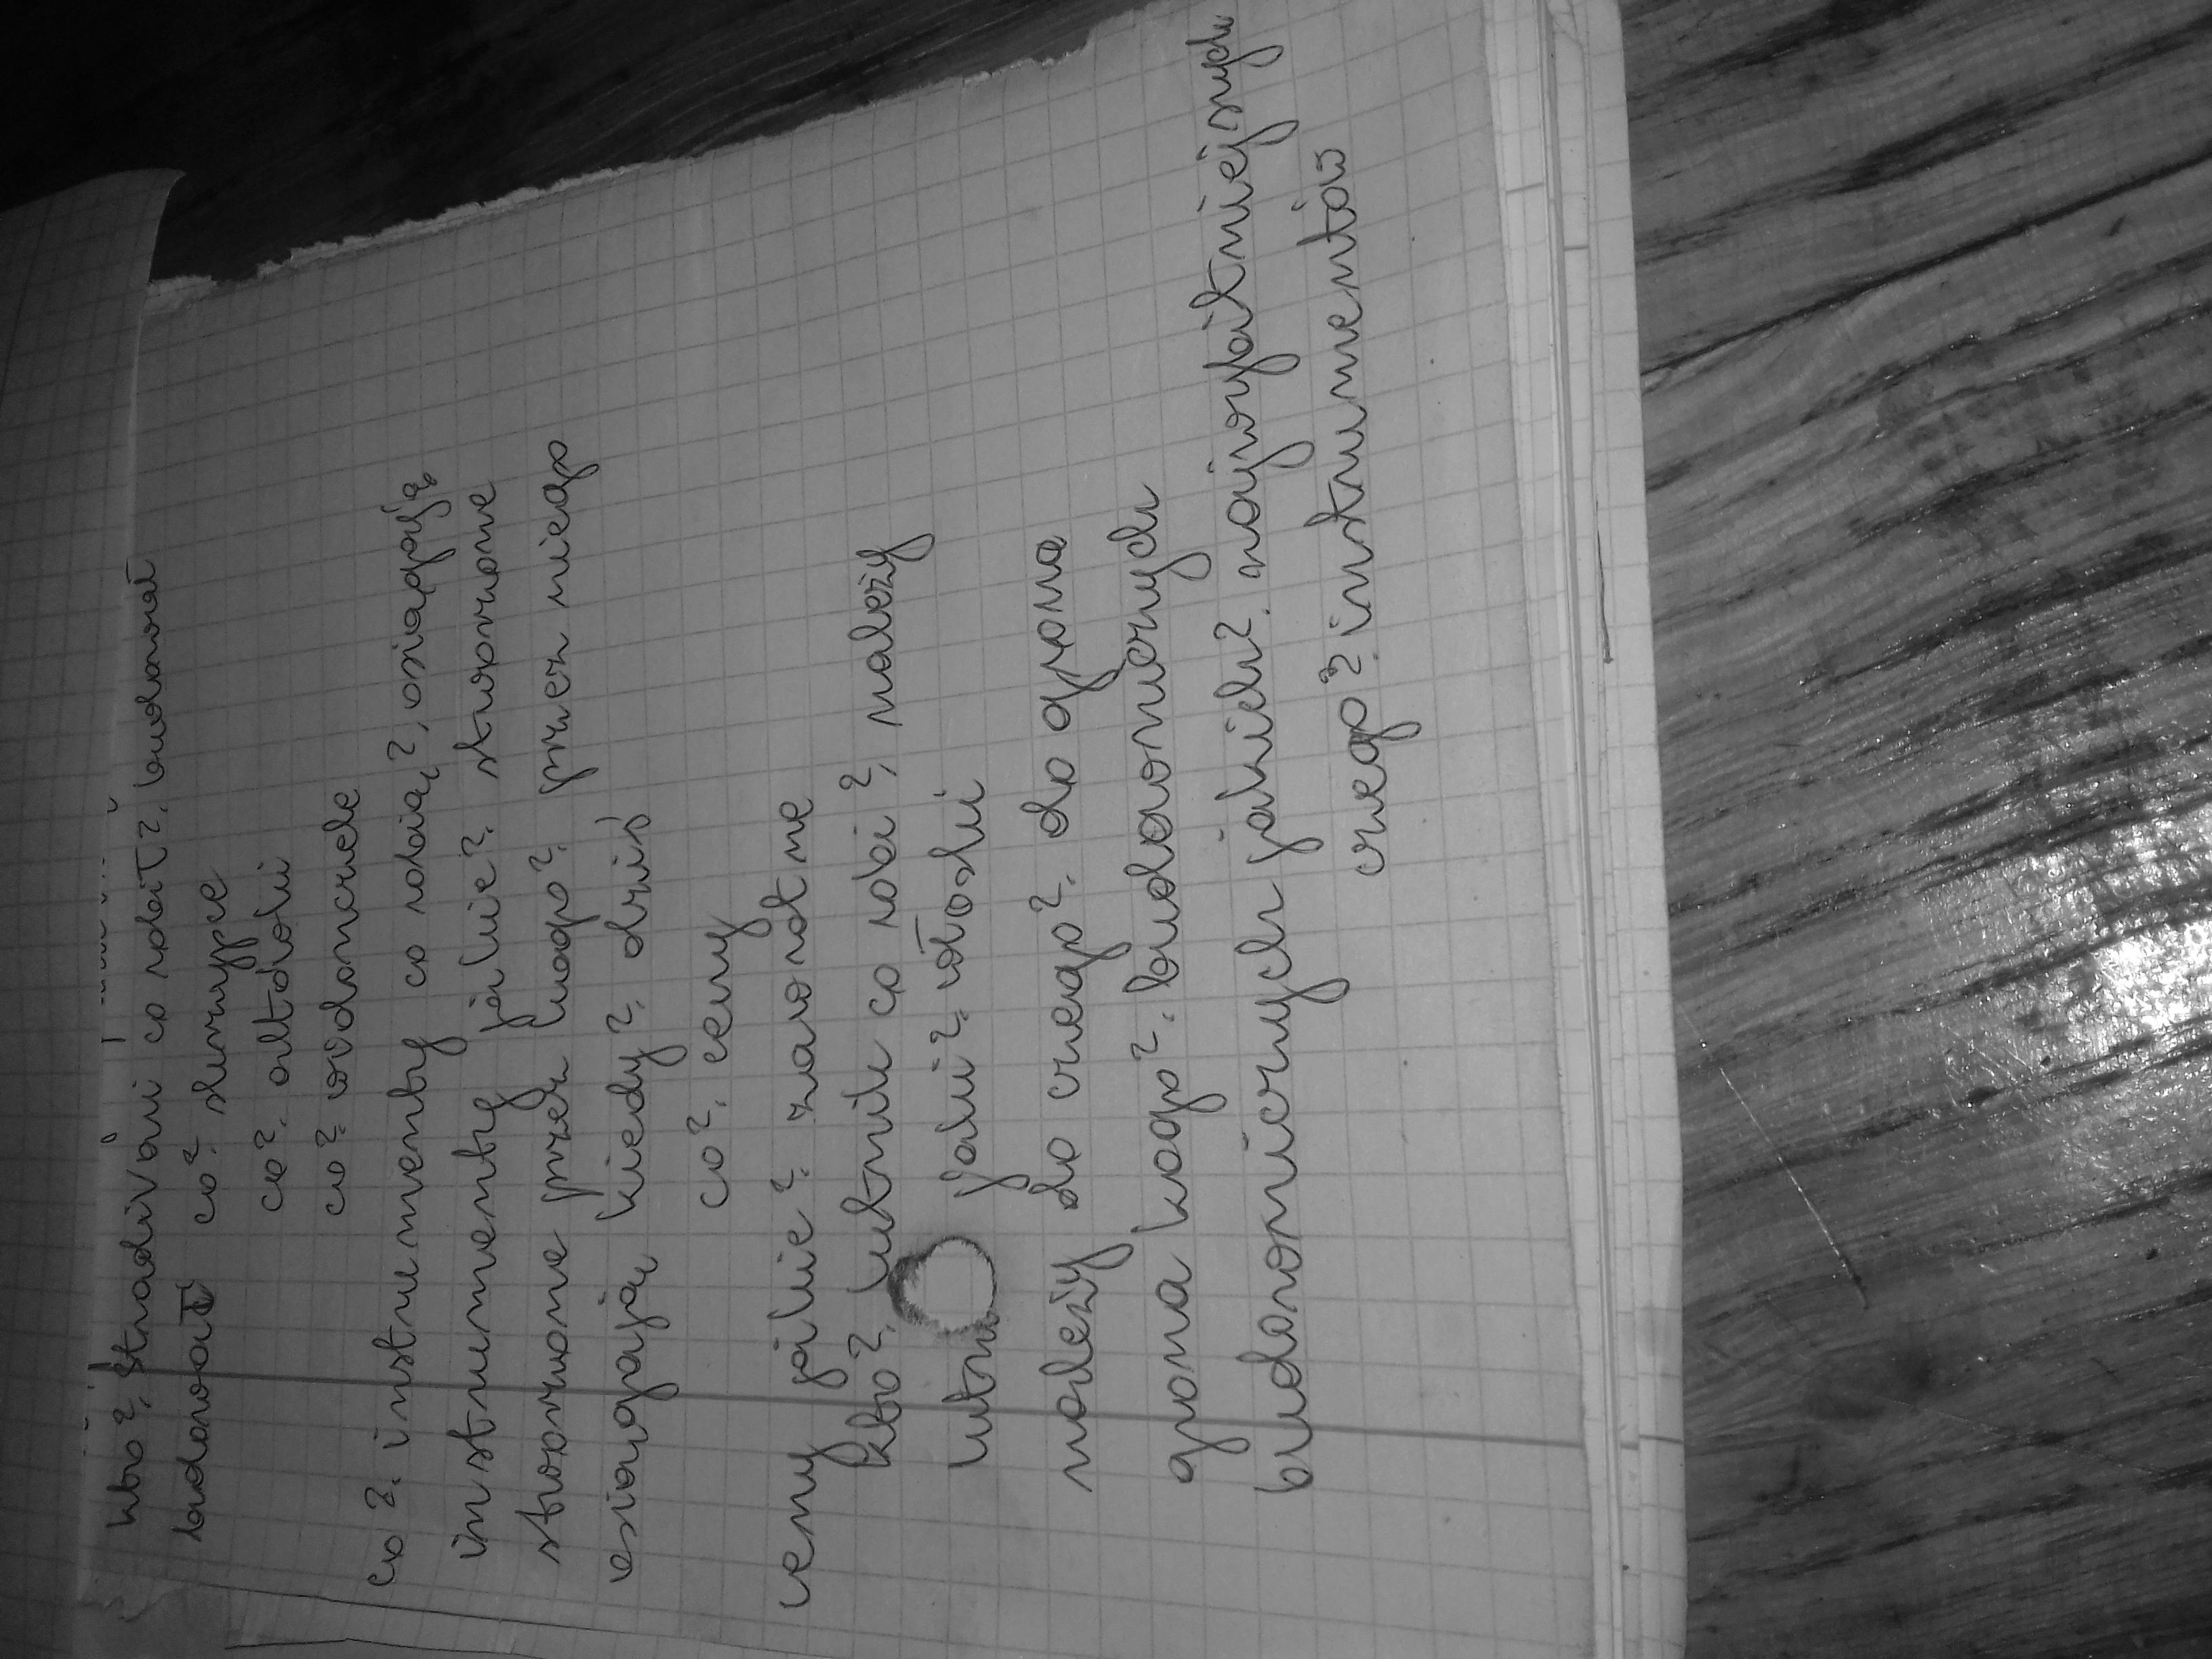 kto?. Stradivari co robił?. budował
budował co?. skrzypce
co?. altówki
co?. wiolonczele
co?. instrumenty co robią?, osiągają
instrumenty jakie?. stworzone
stworzone przez kogo?. przez niego
osiągają kiedy?. dziś
co?. ceny
ceny jakie?. zawrotne
kto?. lutnik co robi?, należy
jaki?. włoski
należy do czego?. do grona
grona kogo?. budowniczych
budowniczych jakich?. najwybitniejszych
czego?. instrumentów